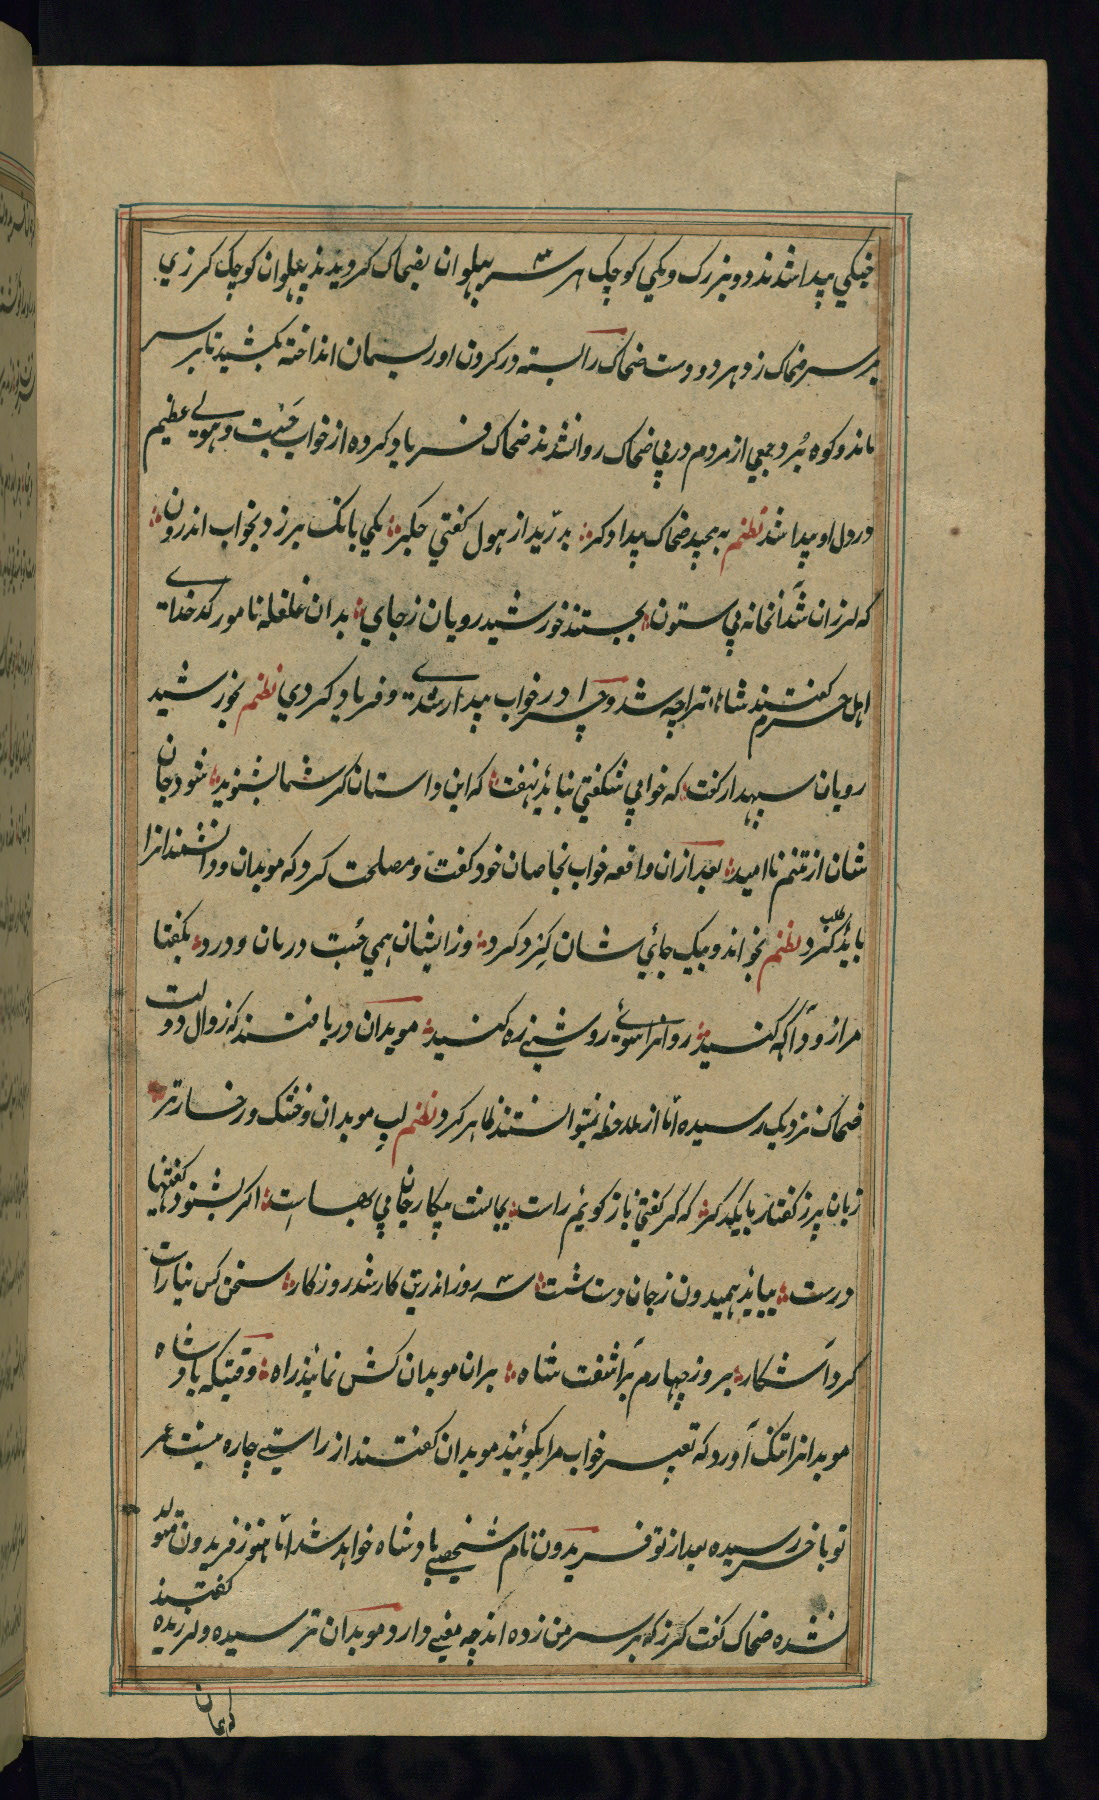 جنگی پیدا شدند دو بزرک و یکی کوچک هر سه پهلوان بضحاک کردیدند پهلوان کوچک کرزی
بر سر ضحاک زد هر دو دست ضحاک را بسته در کردن او ریسمان انداخته بکشید تا بر سر
ماند و کوه برد و جمعی از مردم در پی ضحاک روان شدند ضحاک فریاد کرده از خواب و هولی عظیم
در دل او پیدا شد نظم به پیچید ضحاک بیدادکر بدرید از هول کفتی جکر یکی بانک برزد بخواب اندرون
که لرزان شد آنخانه بی ستون بجستند خورشید رویان ز جای بدان غلغله نامور کدخدای
اهل حرم کفتند شاها ترا چه شد و چرا در خواب بیدار شدی و فریاد کردی نظم بخورشید
رویان سپهدار کفت که خوابی شکفتی نباید نهفت که این داستان کر شما بشنوید شود جان
شان از تنم ناامید بعد ازان واقعه خواب بخاصان خود کفت و مصلحت کرد که موبدان و دانشمندانرا
باید طلب کرد نظم بخواند و بیک جای شان کرد کرد وز ایشان همی جست درمان درد بکفتا
مرا زود آکه کنید روانرا سوی روشنی ره کنید موبدان دریافتند که زوال دولت
ضحاک نزدیک رسیده اما از ملاحظه نتوانستند ظاهر کرد نظم لب موبدان خشک و رخساره تر
زبان پر ز کفتار با یکدکر که کر کفتنی باز کوئیم راست بجانست پیکار جان بی بهاست اکر بشنود کفتنیها
درست بباید همیدون ز جان دست شست سه روز اندرین کار شد روزکار سخن کس نیارست
کرد آشکار بروز چهارم برآشفت شاه بران موبدان کش نمایند راه وقتیکه بادشاه
موبدانرا تنک آورد که تعبیر خواب مرا بکوئید موبدان کفتند از راستی چاره نیست عمر
تو باخر رسیده بعد از تو فریدون نام شخصی بادشاه خواهد شد اما هنوز فریدون متولد
نشده ضحاک کفت کرز که بر سر من زده اند چه معنی دارد موبدان ترسیده و لرزیده کفتند
که جان